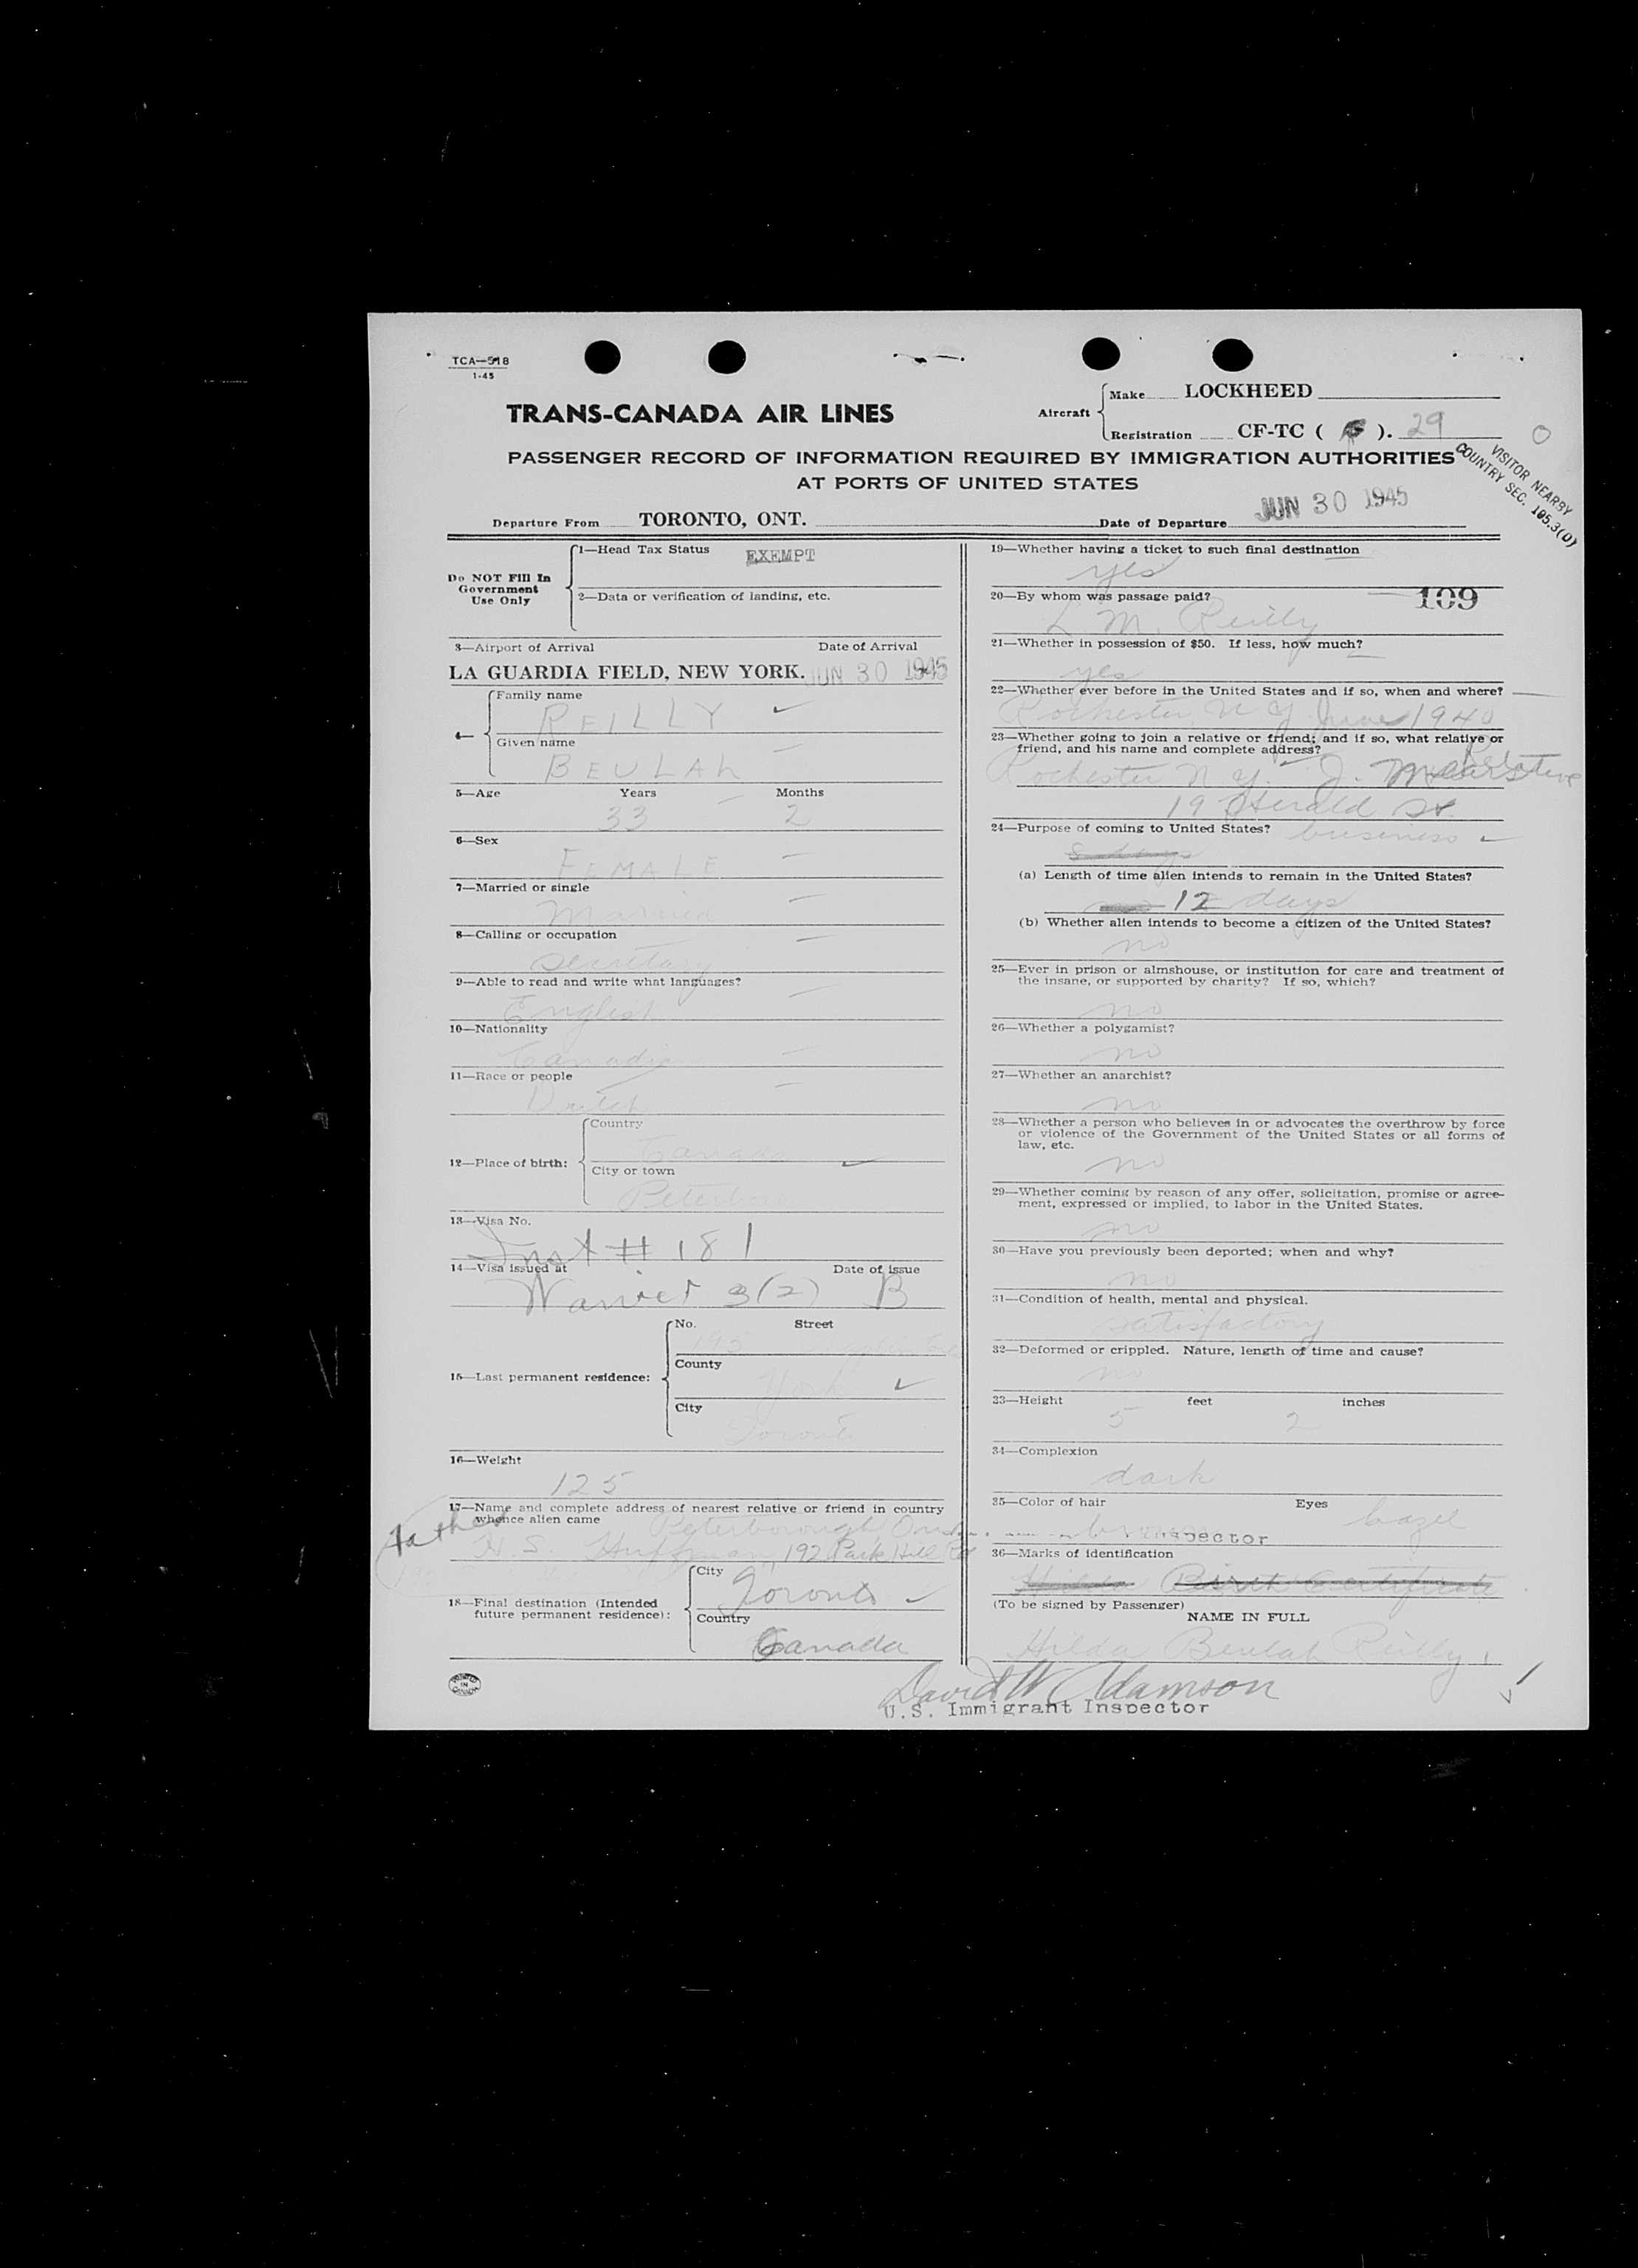 TCA—518
1-45
TRANS-CANADA AIR LINES
Aircraft
Make LOCKHEED
Registration CF-TC ( ). 29
PASSENGER RECORD OF INFORMATION REQUIRED BY IMMIGRATION AUTHORITIES
AT PORTS OF UNITED STATES
VISITOR NEARBY
COUNTRY SEC. 105.3(D)
Departure From TORONTO, ONT. Date of Departure JUN 30 1945
Do NOT Fill In
Government
Use Only
1—Head Tax Status EXEMPT
2—Data or verification of landing, etc.
3—Airport of Arrival Date of Arrival
LA GUARDIA FIELD, NEW YORK. JUN 30 1945
4—
Family name
REILLY
Given name
BEULAH
5—Age Years Months
33 2
6—Sex
FEMALE
7—Married or single
Married
8—Calling or occupation
Secretary
9—Able to read and write what languages?
English
10—Nationality
Canadian
11—Race or people
Dutch
12—Place of birth:
Country
Canada
City or town
Peterboro
13—Visa No.
Inst # 181
14—Visa issued at Date of issue
Waiver 3(2) B
15—Last permanent residence:
No. Street
193
County
York
City
Toronto
16—Weight
125
17—Name and complete address of nearest relative or friend in country
whence alien came
father
Peterborough Ont
H. S. Huffman, 192 Park Hill Rd
18—Final destination (Intended
future permanent residence):
City
Toronto
Country
Canada
PRINTED IN CANADA
19—Whether having a ticket to such final destination
yes
20—By whom was passage paid? 109
L. M. Reilly
21—Whether in possession of $50. If less, how much?
yes
22—Whether ever before in the United States and if so, when and where?
Rochester N Y June 1940
23—Whether going to join a relative or friend; and if so, what relative or
friend, and his name and complete address?
Relative
Rochester N Y. J. Mears
19 Herald St.
24—Purpose of coming to United States? business
(a) Length of time alien intends to remain in the United States?
12 days
(b) Whether alien intends to become a citizen of the United States?
no
25—Ever in prison or almshouse, or institution for care and treatment of
the insane, or supported by charity? If so, which?
no
26—Whether a polygamist?
no
27—Whether an anarchist?
no
28—Whether a person who believes in or advocates the overthrow by force
or violence of the Government of the United States or all forms of
law, etc.
no
29—Whether coming by reason of any offer, solicitation, promise or agree-
ment, expressed or implied, to labor in the United States.
no
30—Have you previously been deported; when and why?
no
31—Condition of health, mental and physical.
satisfactory
32—Deformed or crippled. Nature, length of time and cause?
no
33—Height feet inches
5 2
34—Complexion
dark
35—Color of hair Eyes
brown hazel
Inspector
36—Marks of identification
Hilda Birth Certificate
(To be signed by Passenger)
NAME IN FULL
Hilda Beulah Reilly
David W Adamson
U.S. Immigrant Inspector